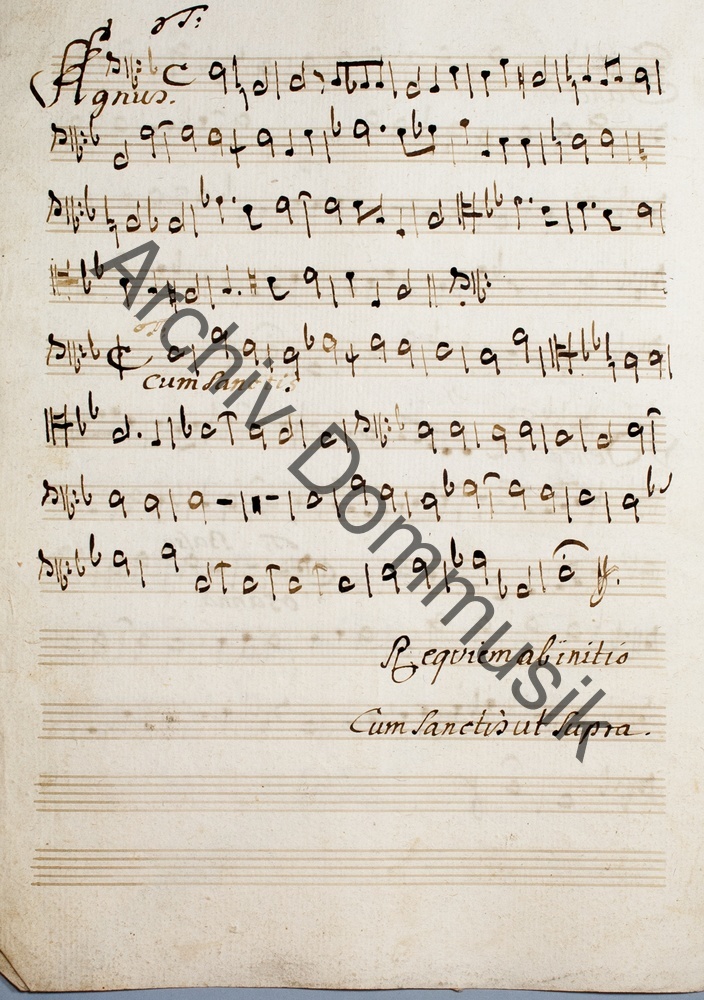 Agnus.
Cum Sanctis
Requiem ab initio
Cum Sanctis ut supra.
Archiv Dommusik